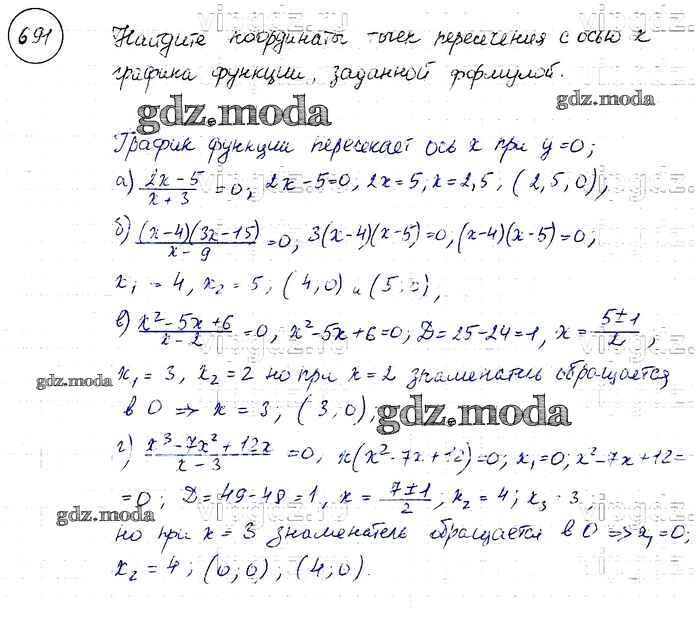 691
Найдите координаты точек пересечения с осью x
графика функции, заданной формулой.
gdz.moda
gdz.moda
График функции пересекает ось x при y=0;
а) (2x-5)/(x+3) =0; 2x-5=0, 2x=5; x=2,5; (2,5,0);
б) ((x-4)(3x-15))/(x-9) =0; 3(x-4)(x-5)=0, (x-4)(x-5)=0;
x₁ = 4, x₂ = 5; (4;0) и (5;0);
в) (x²-5x+6)/(x-2) =0, x²-5x+6=0; D=25-24=1, x= (5±1)/2;
gdz.moda
x₁=3, x₂=2 но при x=2 знаменатель обращается
в 0 => x=3; (3,0);
gdz.moda
г) (x³-7x²+12x)/(x-3) =0, x(x²-7x+12)=0; x₁=0; x²-7x+12=
=0; D=49-48=1, x= (7±1)/2; x₂=4; x₃ 3;
gdz.moda
но при x=3 знаменатель обращается в 0 => x₁=0;
gdz.moda
x₂=4; (0;0); (4;0).